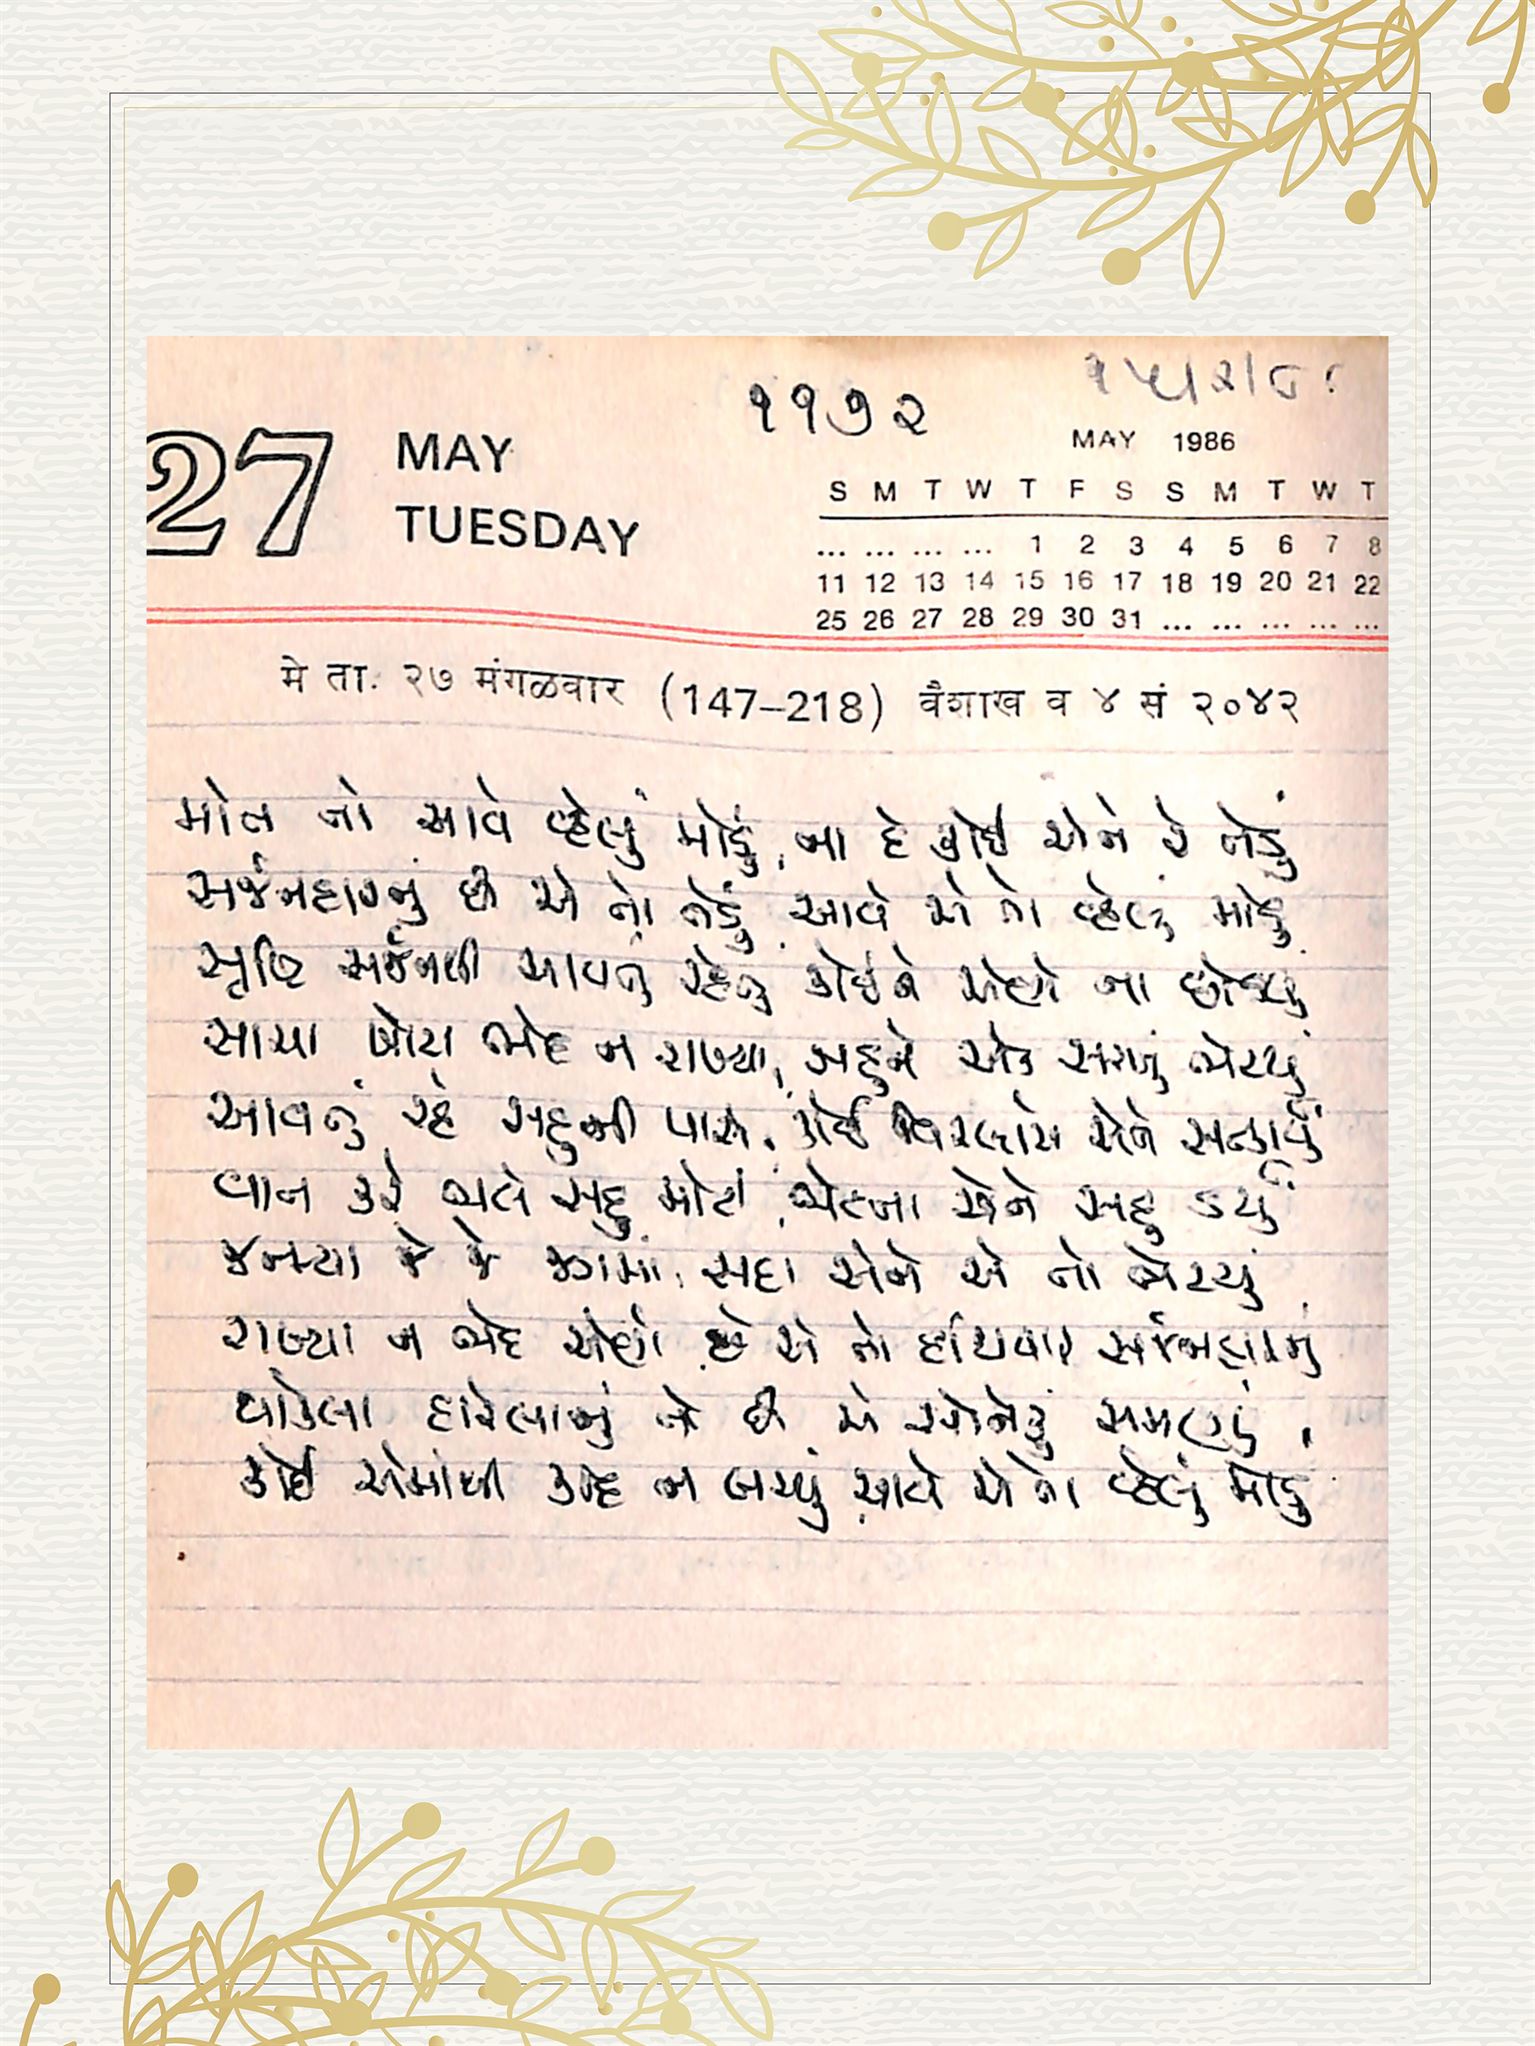 ૧૧૭૨
MAY 1986
27 MAY
TUESDAY
S M T W T F S S M T W T
... ... ... ... 1 2 3 4 5 6 7 8
11 12 13 14 15 16 17 18 19 20 21 22
25 26 27 28 29 30 31 ... ... ... ... ...
मे ता. २७ मंगळवार (147–218) वैशाख व ४ सं २०४२
મોત તો આવે વ્હેલું મોડું, ના દે કોઈ એને રે તેડું
સર્જનહારનું છે એ તો તેડું આવે એ તો વ્હેલું મોડું
સૃષ્ટિ સર્જનથી આવતું રહેતું કોઈને એણે ના છોડ્યું
સાચા ખોટા ભેદ ન રાખ્યા, સહુને એક સરખું ભેટયું
આવતું રહે સહુની પાસ, કોઈ વિરલાએ એને સત્કાર્યું
વાત કરે ભલે સહુ મોટી, ભેટતા એને સહુ ડર્યું
જનમ્યા જે જે જગમાં, સદા એને એ તો ભેટયું
રાખ્યા ન ભેદ એણે છે એ તો હથિયાર સર્જનહારનું
થાકેલા હારેલાનું તો છે એ અનોખું સમણું
કોઈ એમાંથી કદી ન બચ્યું આવે એ તો વ્હેલું મોડું